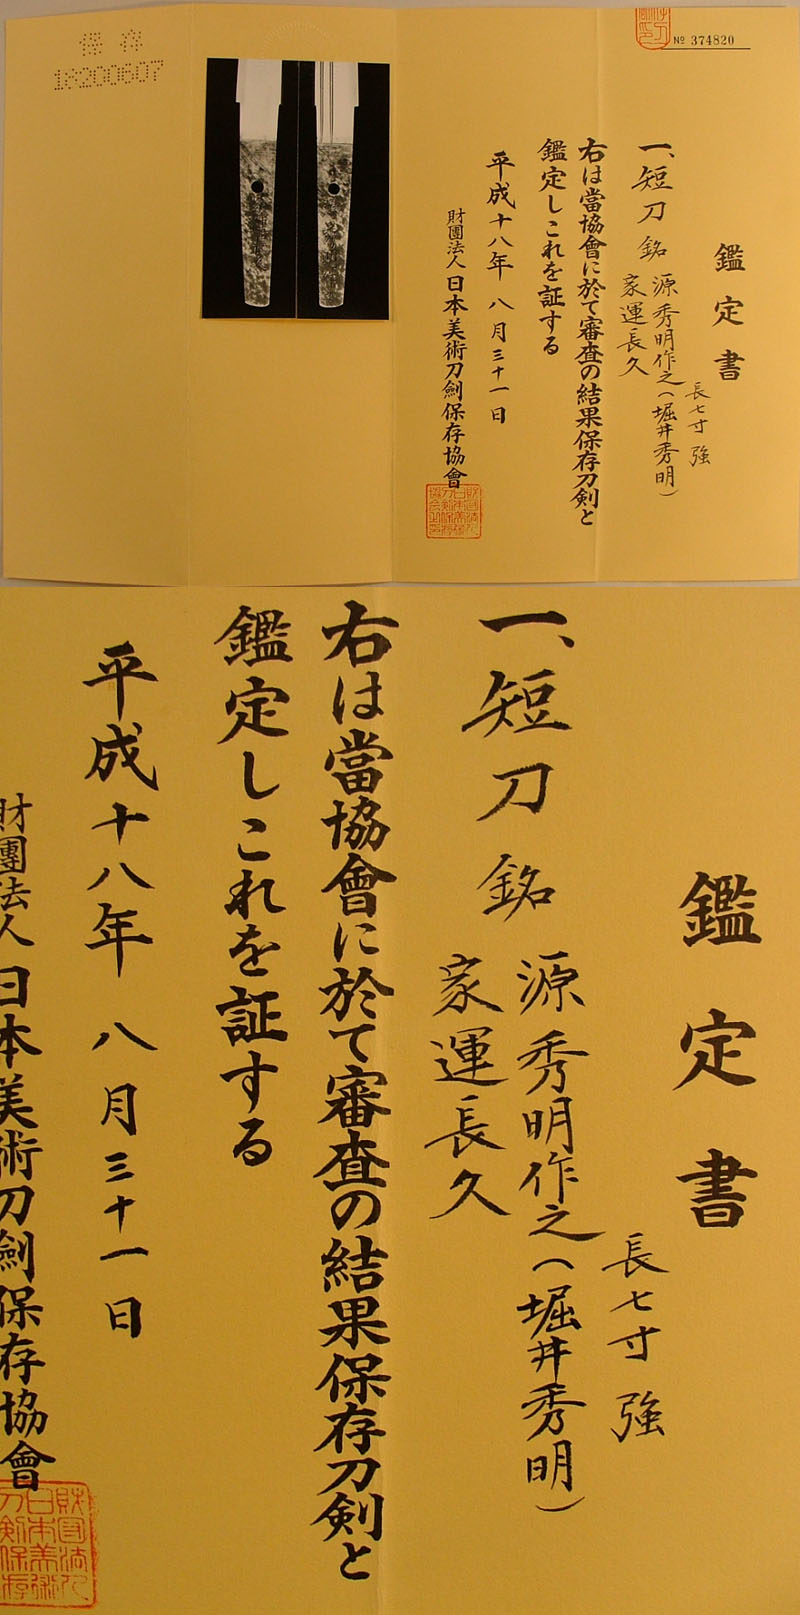 保存
18200607
№ 374820
鑑定書
長七寸強
一、短刀 銘 源秀明作之(堀井秀明)
家運長久
右は當協會に於て審査の結果保存刀剣と
鑑定しこれを証する
平成十八年 八月三十一日
財團法人 日本美術刀劍保存協會
鑑定書
長七寸強
一、短刀 銘 源秀明作之(堀井秀明)
家運長久
右は當協會に於て審査の結果保存刀剣と
鑑定しこれを証する
平成十八年 八月三十一日
財團法人 日本美術刀劍保存協會